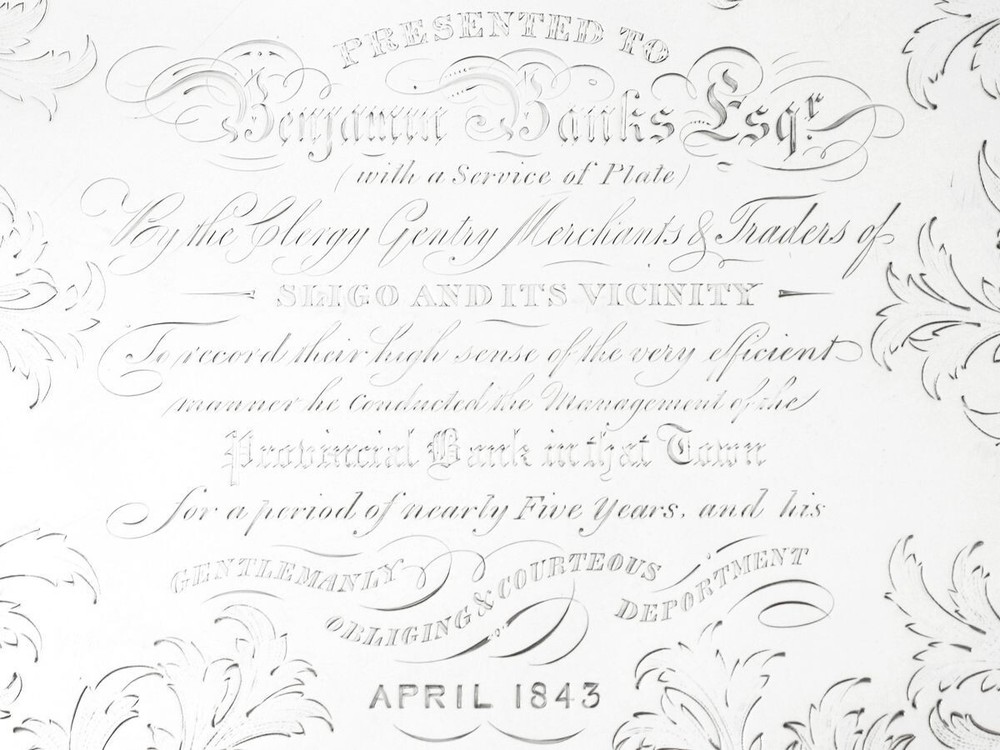 PRESENTED TO
Benjamin Banks Esqr.
(with a Service of Plate)
By the Clergy Gentry Merchants & Traders of
SLIGO AND ITS VICINITY
To record their high sense of the very efficient
manner he conducted the Management of the
Provincial Bank in that Town
for a period of nearly Five Years, and his
GENTLEMANLY OBLIGING & COURTEOUS DEPORTMENT
APRIL 1843